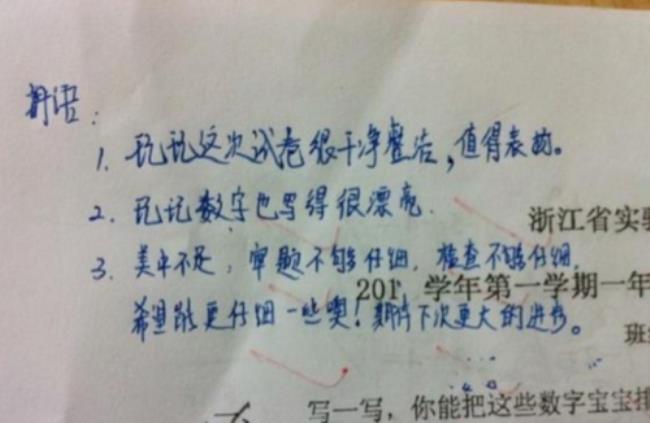 评语：
1. 玘玘这次试卷很干净整洁，值得表扬。
2. 玘玘数字也写得很漂亮.
浙江省实
3. 美中不足，审题不够仔细，检查不够仔细，
201 学年第一学期一年
希望能更仔细一些噢！期待下次更大的进步。
班
写一写，你能把这些数字宝宝排